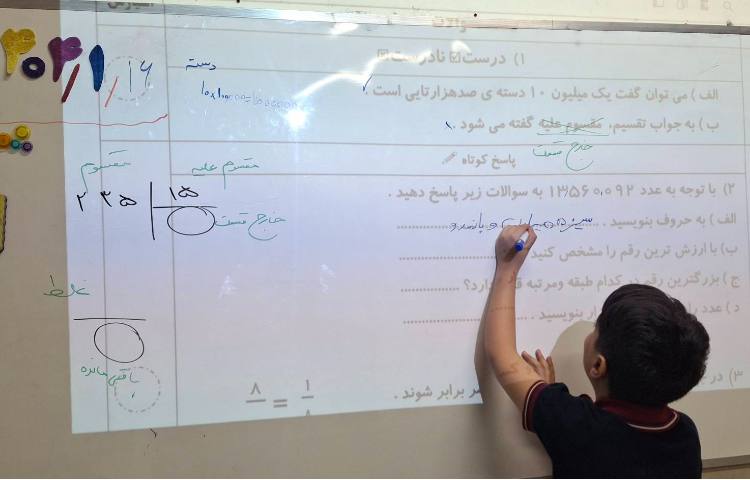 ۱) درست☑ نادرست☒
دسته
الف ) می توان گفت یک میلیون ۱۰ دسته ی صدهزارتایی است .
ب ) به جواب تقسیم، مقسوم علیه گفته می شود .
خارج قسمت
پاسخ کوتاه
مقسوم
مقسوم علیه
۲۳۵
۱۵
خارج قسمت
۲) با توجه به عدد ۱۳۵۶۰۰۹۲ به سوالات زیر پاسخ دهید .
الف ) به حروف بنویسید .
سیزده میلیون و پانصد و
ب) با ارزش ترین رقم را مشخص کنید
ج ) بزرگترین رقم در کدام طبقه ومرتبه
د ) عدد
بنویسید .
غلط
باقی مانده
۳) در
برابر شوند .
۱
=
۸